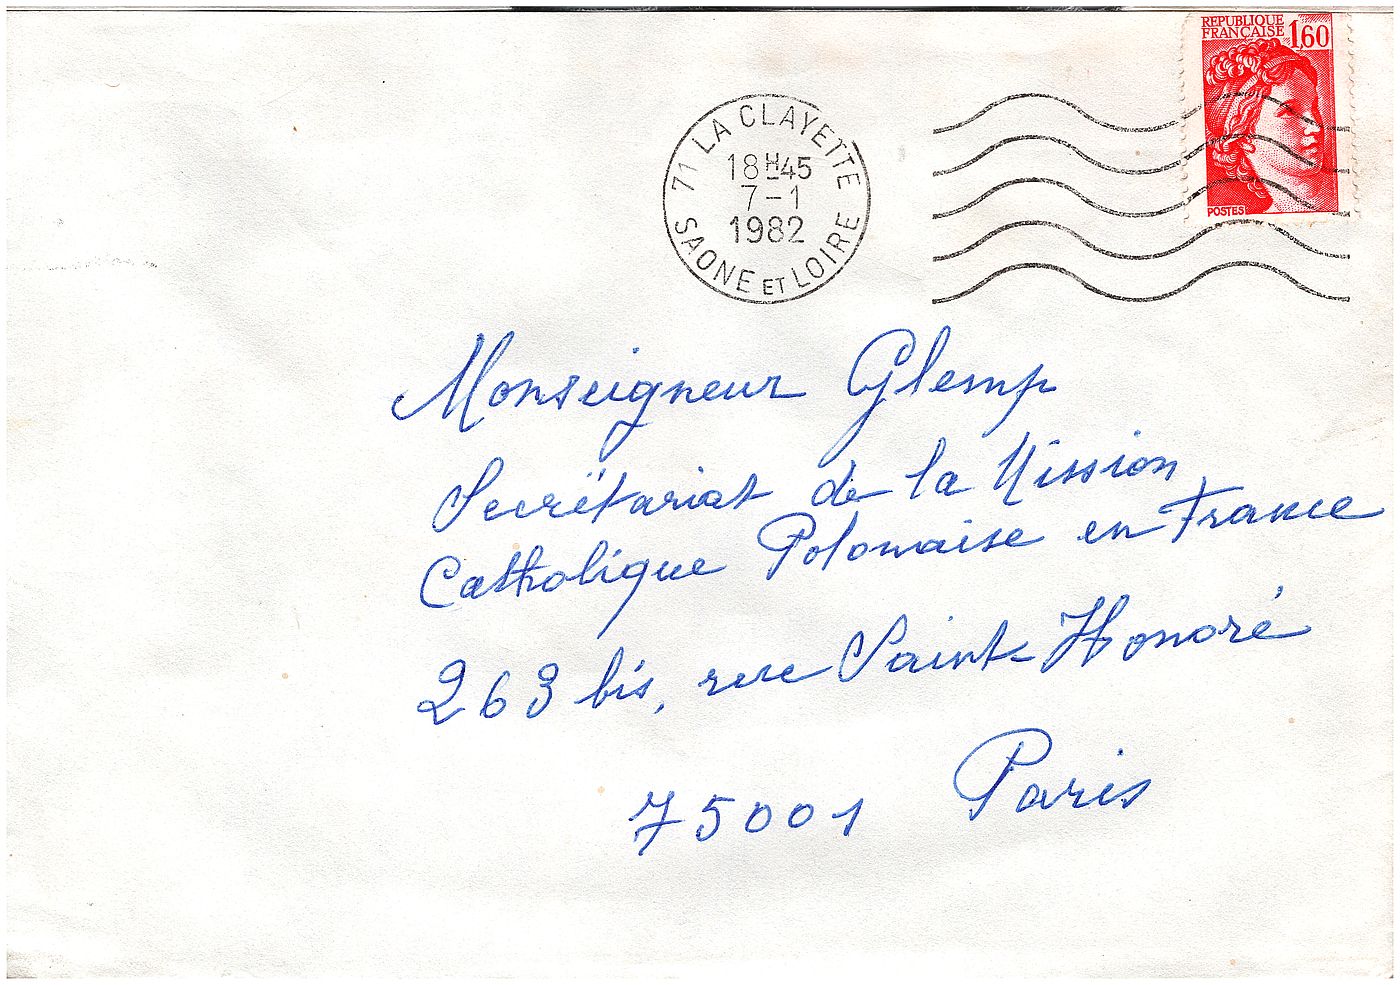 RÉPUBLIQUE
FRANÇAISE 1,60
POSTES
71 LA CLAYETTE
18H45
7-1
1982
SAONE ET LOIRE
Monseigneur Glemp
Secrétariat de la Mission
Catholique Polonaise en France
263 bis, rue Saint-Honoré
75001 Paris